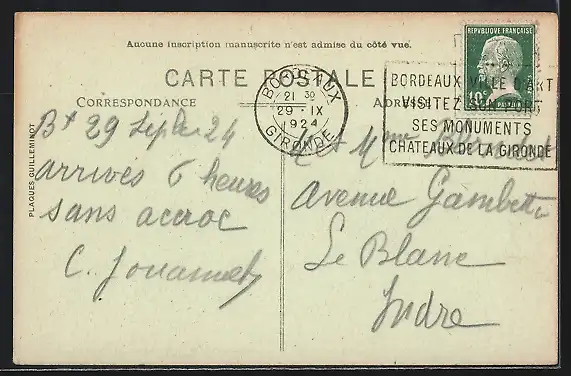 Aucune inscription manuscrite n'est admise du côté vue.
RÉPUBLIQUE FRANÇAISE
CARTE POSTALE
CORRESPONDANCE
BORDEAUX
21 30
29 - IX
1924
GIRONDE
BORDEAUX VILLE D'ART
VISITEZ SON PORT
SES MONUMENTS
CHATEAUX DE LA GIRONDE
10c
PLAQUES GUILLEMINOT
Bx 29 Septbre 24
arrivés 6 heures
sans accroc
C. Jouannet
et Mme
Avenue Gambetta
Le Blanc
Indre